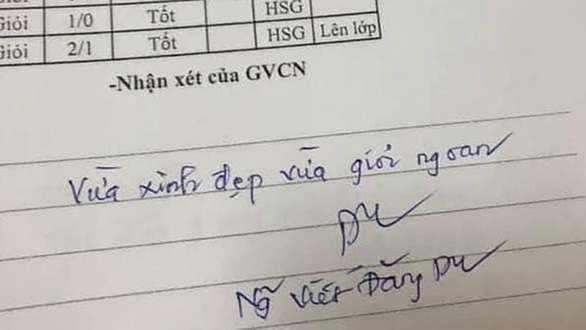 Giỏi 1/0 Tốt HSG
Giỏi 2/1 Tốt HSG Lên lớp
-Nhận xét của GVCN
Vừa xinh đẹp vừa giỏi ngoan
Du
Ng̃ Viết Đăng Du